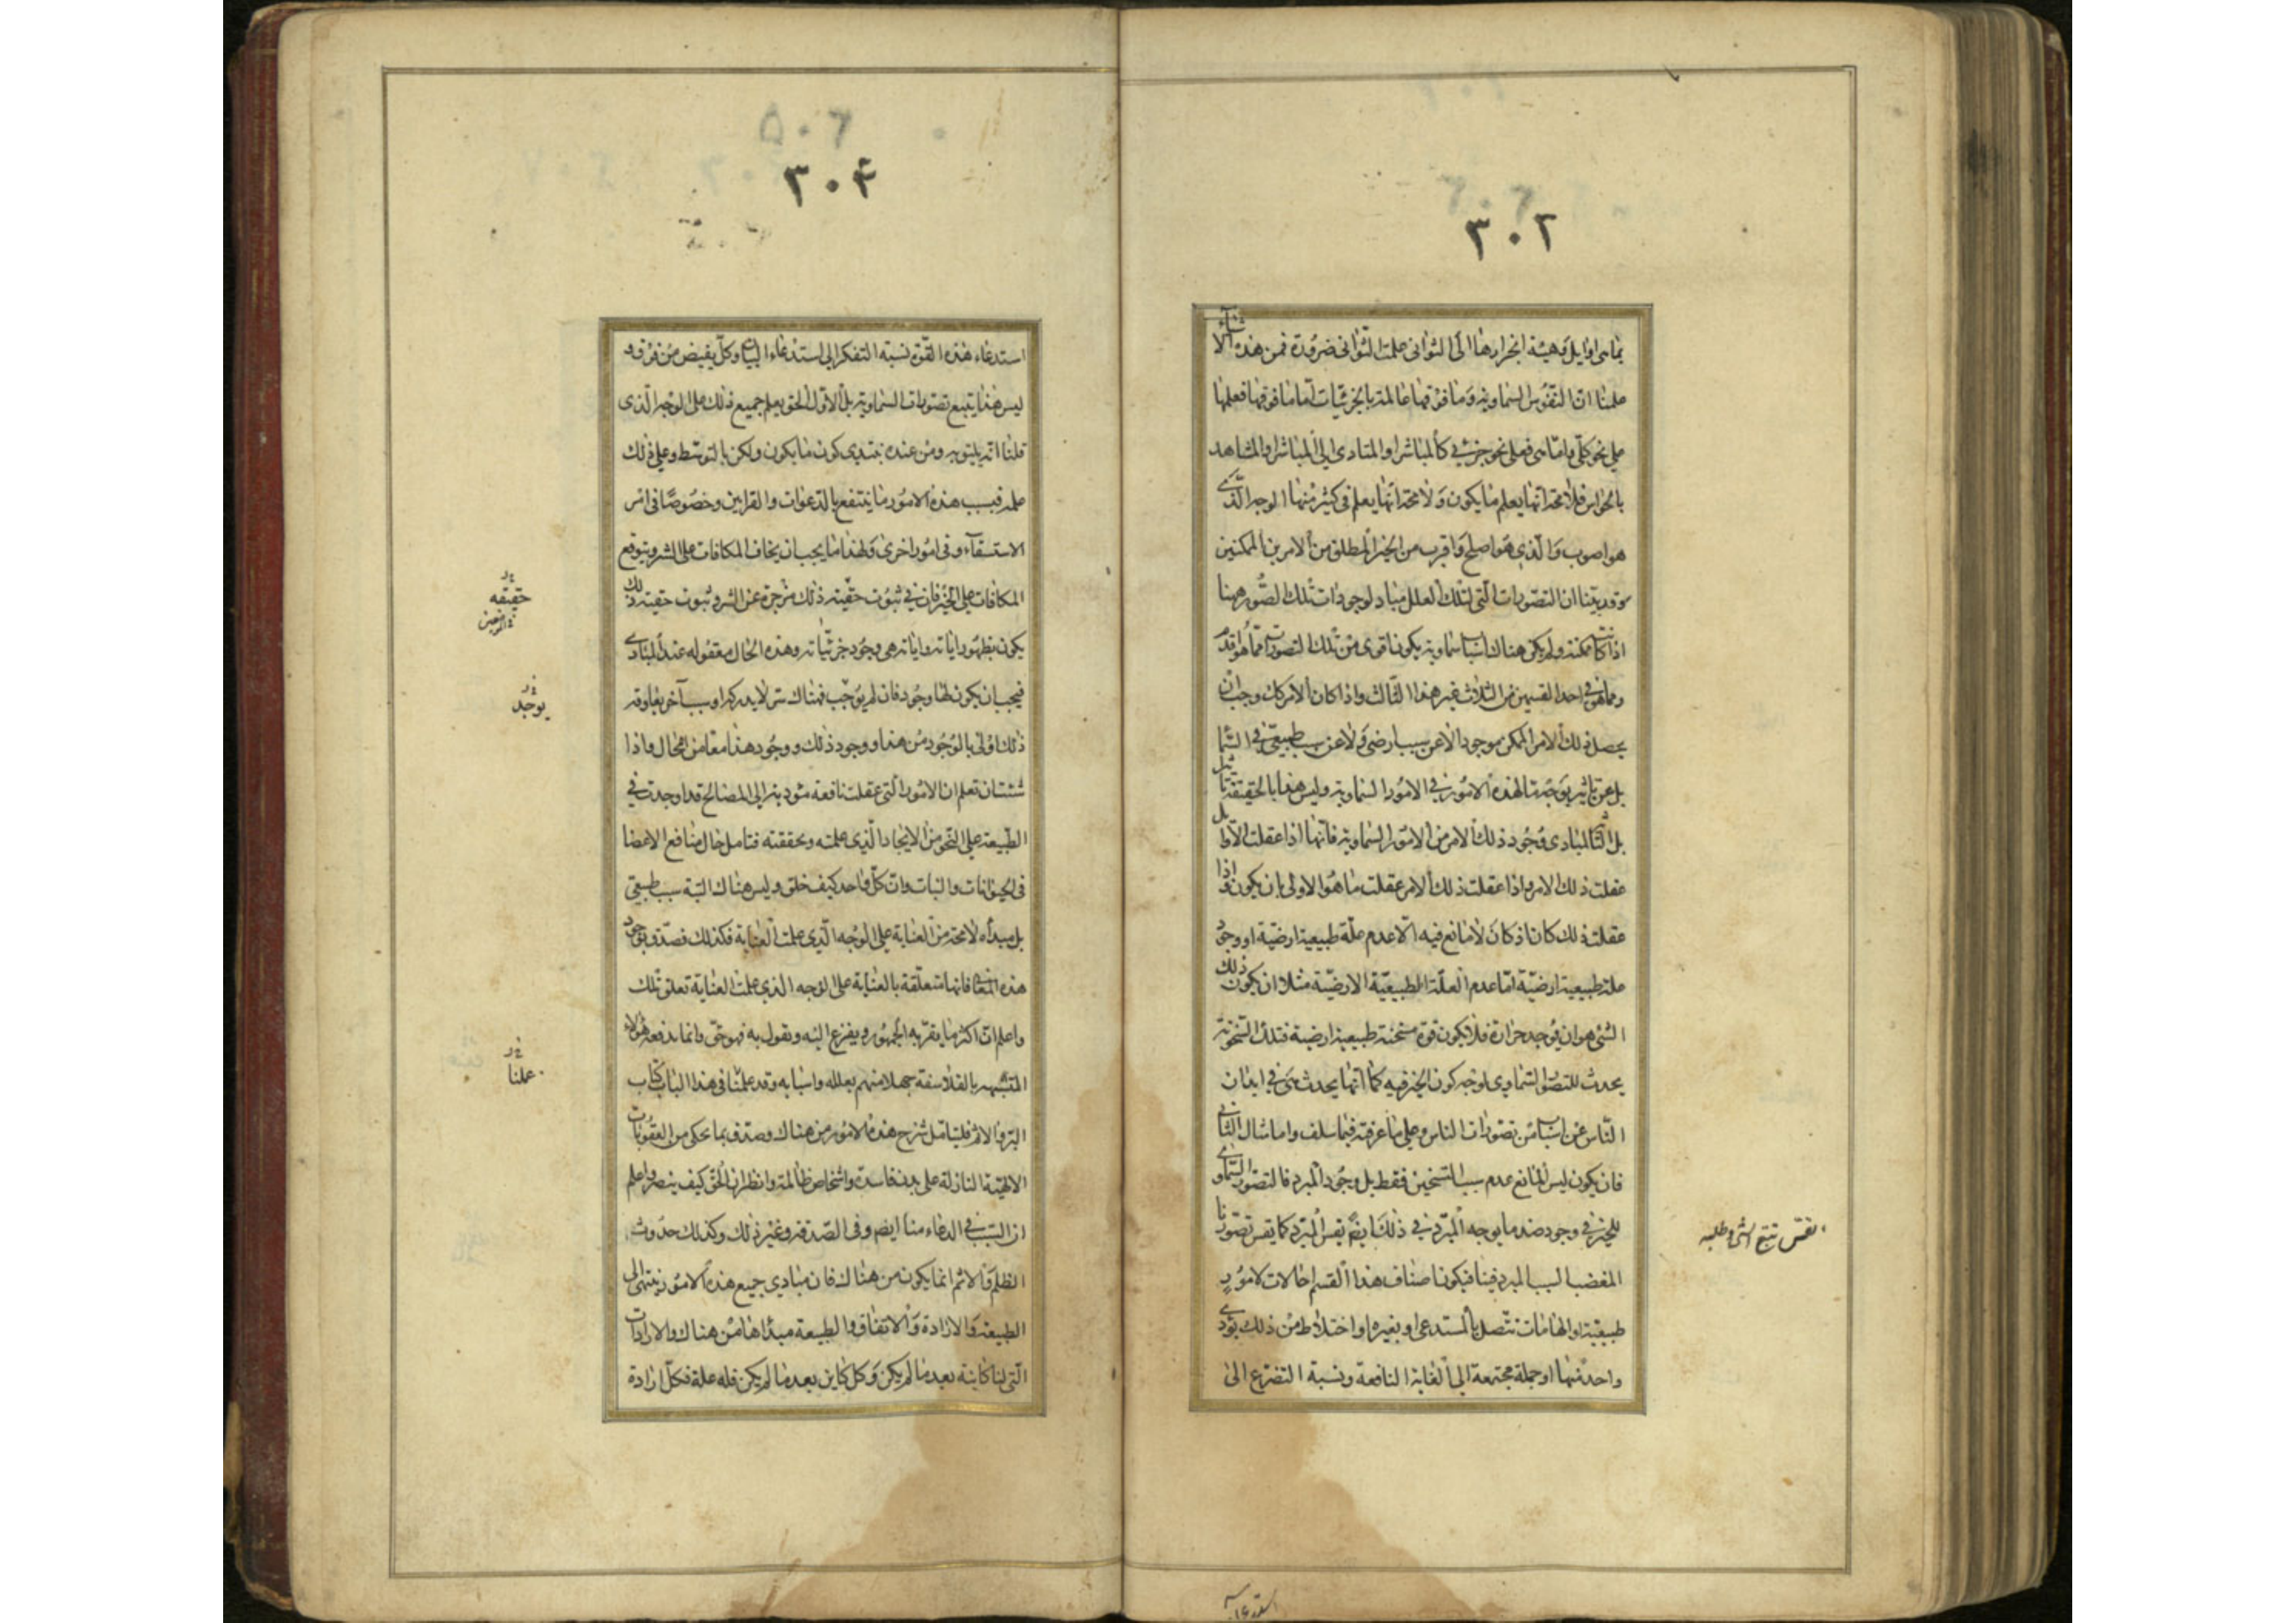 ٣٠٢
بما هى اوايل وهيئة انجرارها الى الثوانى علمت الثوانى ضرورة فمن هذه الا
علمنا ان النفوس السماوية وما فوقها عالمة بالجزئيات اما ما فوقها فعلمها
على نحو كلى واما هى فعلى نحو جزئى كالمباشر او المتادى الى المباشر او المشاهد
بالحواس فلا محة انها يعلم ما يكون ولا محة انها يعلم فى كثير منها الوجه الذى
هو اصوب والذى هو اصلح واقرب من الخير المطلق من الامرين الممكنين
وقد بينا ان التصورات التى لتلك العلل مباد لوجودات تلك الصور ههنا
اذا كانت ممكنة ولم يكن هناك اسباب سماوية يكون اقوى من تلك التصورات مما هو اقدم
ومما هو فى احد القسمين من الثلاث غير هذا الثالث واذا كان الامر كك وجب ان
يحصل ذلك الامر الممكن موجودا لا عن سبب ارضى ولا عن سبب طبيعى فى السما
بل عن تاثير بوجه ما لهذه الامور فى الامور السماوية وليس هذا بالحقيقة تاثيرا
بل التاثير لمبادى وجود ذلك الامر من الامور السماوية فانها اذا عقلت الاوايل
عقلت ذلك الامر واذا عقلت ذلك الامر عقلت ما هو الاولى بان يكون واذا
عقلت ذلك كان اذ كان لا مانع فيه الا عدم علة طبيعية ارضية او وجود
علة طبيعية ارضية اما عدم العلة الطبيعية الارضية مثلا ان يكون ذلك
الشئ هو ان يوجد حرارة فلا يكون قوة مسخنة طبيعية ارضية فتلك السخونة
يحدث للتصور السماوى لوجه كون الخير فيه كما انها يحدث هى فى ابدان
الناس عن اسباب من تصورات الناس وعلى ما عرفته فيما سلف واما مثال الثانى
فان يكون ليس المانع عدم سبب التسخين فقط بل وجود المبرد فالتصور السماوى
للخير فى وجود ضد ما يوجبه المبرد فى ذلك ايضا يقسر المبرد كما يقسر تصورنا
المغضب السبب المبرد فينا فيكون اصناف هذا القسم احالات لامور
طبيعية او الهامات تتصل بالمستدعى او بغيره او اختلاط من ذلك يؤدى
واحد منها او جملة مجتمعة الى الغاية النافعة ونسبة التضرع الى
٣٠٤
استدعاء هذه القوة نسبة التفكر الى استدعاء البيان وكل يفيض من فوق و
ليس هذا يتبع تصورات السماوية بل الاول الحق يعلم جميع ذلك على الوجه الذى
قلنا انه يليق به ومن عنده يبتدى كون ما يكون ولكن بالتوسط وعلى ذلك
علمه فبسبب هذه الامور ما ينتفع بالدعوات والقرابين وخصوصا فى امر
الاستسقآء وفى امور اخرى ولهذا ما يجب ان يخاف المكافات على الشر ويتوقع
المكافات على الخير فان فى ثبوت حقيته ذلك مزجرة عن الشر وثبوت حقيته ذلك
يكون بظهور اياته واياته هى وجود جزئياته وهذه الحال معقوله عند المبادى
فيجب ان يكون لها وجود فان لم يوجب فهناك شر لا يدركه او سبب آخر يعاوقه
ذلك اولى بالوجود من هذا ووجود ذلك ووجود هذا معا من المحال واذا
شئت ان تعلم ان الامور التى عقلت نافعة مؤدية الى المصالح قد اوجدت فى
الطبيعة على النحو من الايجاد الذى علمته وتحققته فتامل حال منافع الاعضا
فى الحيوانات والنبات وان كل واحد كيف خلق وليس هناك البتة سبب طبيعى
بل مبدأه لا محة من العناية على الوجه الذى علمت العناية فكذلك فصدق بوجود
هذه المعانى فانها متعلقة بالعناية على الوجه الذى علمت العناية تعلق تلك
واعلم ان اكثر ما يقر به الجمهور ويفزع اليه ويقول به فهو حق وانما يدفعه هؤلاء
المتشبهه بالفلاسفة جهلا منهم بعلله واسبابه وقد علمنا فى هذا الباب كتاب
البر والاثم فليتامل شرح هذه الامور من هناك وصدق بما يحكى من العقوبات
الالهية النازلة على مدن فاسدة واشخاص ظالمة وانظر ان الحق كيف ينصر واعلم
ان السبب فى الدعاء منا ايضا وفى الصدقة وغير ذلك وكذلك حدوث
الظلم والاثم انما يكون من هناك فان مبادى جميع هذه الامور ينتهى الى
الطبيعة والارادة والاتفاق والطبيعة مبدأها من هناك والارادات
التى لنا كاينة بعد ما لم يكن وكل كاين بعد ما لم يكن فله علة فكل ارادة
حقيقه
يوجد
عملنا